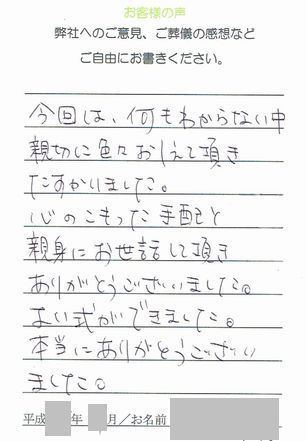 お客様の声
弊社へのご意見、ご葬儀の感想など
ご自由にお書きください。
今回は、何もわからない中
親切に色々おしえて頂き
たすかりました。
心のこもった手配と
親身にお世話して頂き
ありがとうございました。
よい式ができました。
本当にありがとうござい
ました。
平成 年 月/お名前